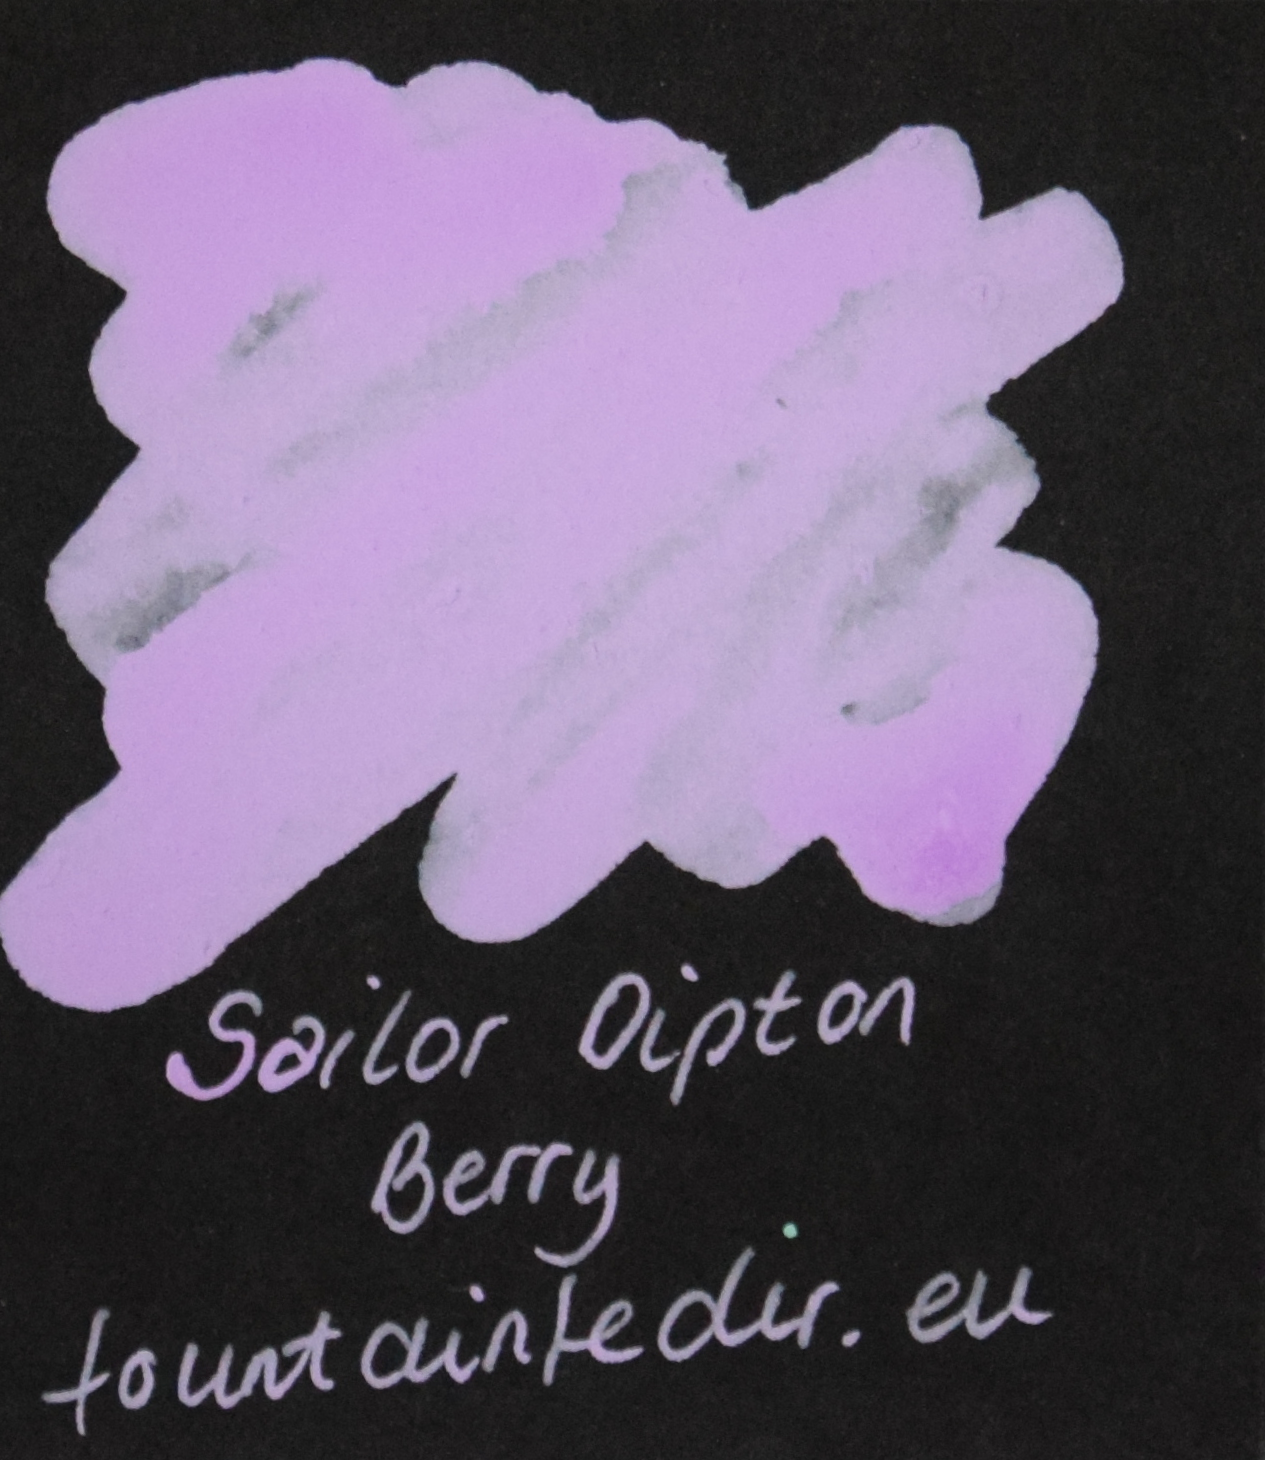 Sailor Dipton
Berry
fountainfeder.eu